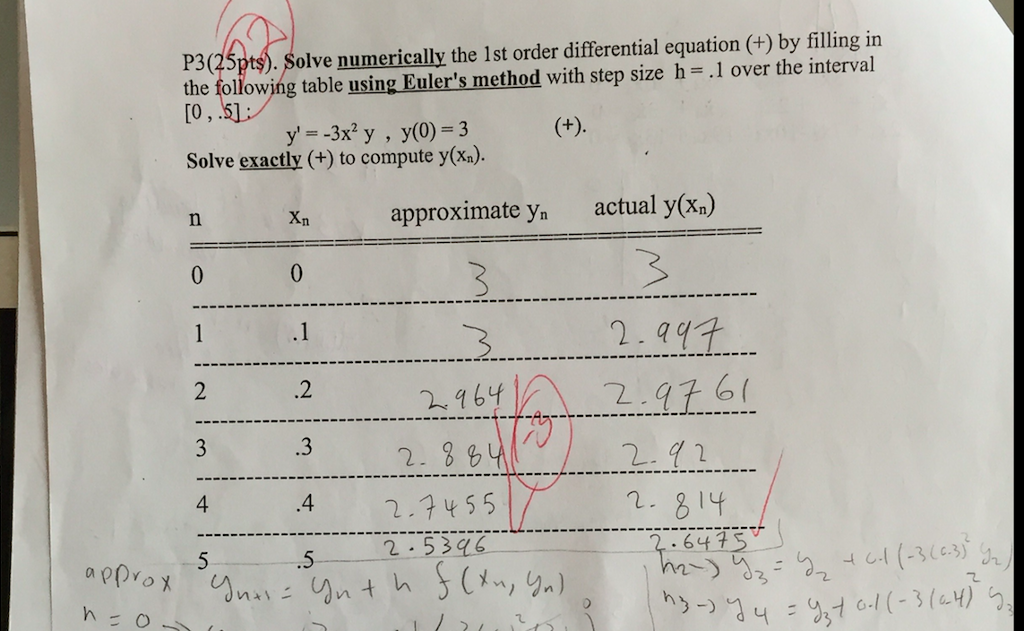 P3(25pts). Solve numerically the 1st order differential equation (+) by filling in
the following table using Euler's method with step size h = .1 over the interval
[0 , .5] :
y' = -3x² y , y(0) = 3 (+).
Solve exactly (+) to compute y(xₙ).
n xₙ approximate yₙ actual y(xₙ)
0 0 3 3
1 .1 3 2.997
2 .2 2.964 2.9761
-3
3 .3 2.884 2.92
4 .4 2.7455 2.814
5 .5 2.5396 2.6475
approx yₙ₊₁ = yₙ + h f(xₙ, yₙ)
n = 0 →
n2→ y₃ = y₂ + 0.1(-3(0.3)² y₂)
n3→ y₄ = y₃ + 0.1(-3(0.4)²